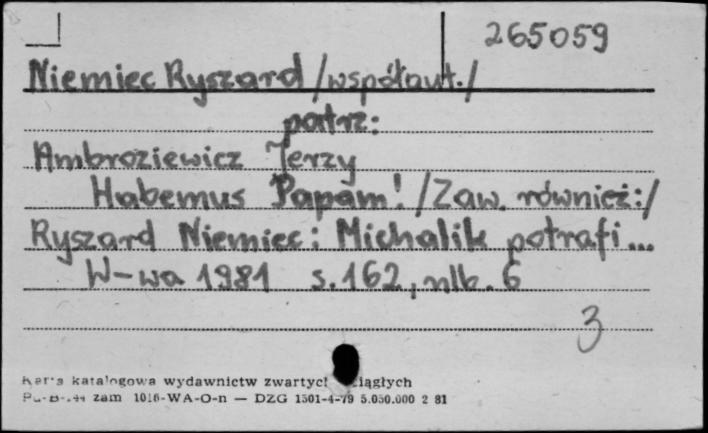 265059
Niemiec Ryszard /współaut./
patrz:
Ambroziewicz Jerzy
Habemus Papam! /Zaw. również:/
Ryszard Niemiec: Michalik potrafi...
W-wa 1981 s.162, nlb. 6
3
katalogowa wydawnictw zwartych ciągłych
zam 1016-WA-O-n — DZG 1501-4-79 5.050.000 2 81